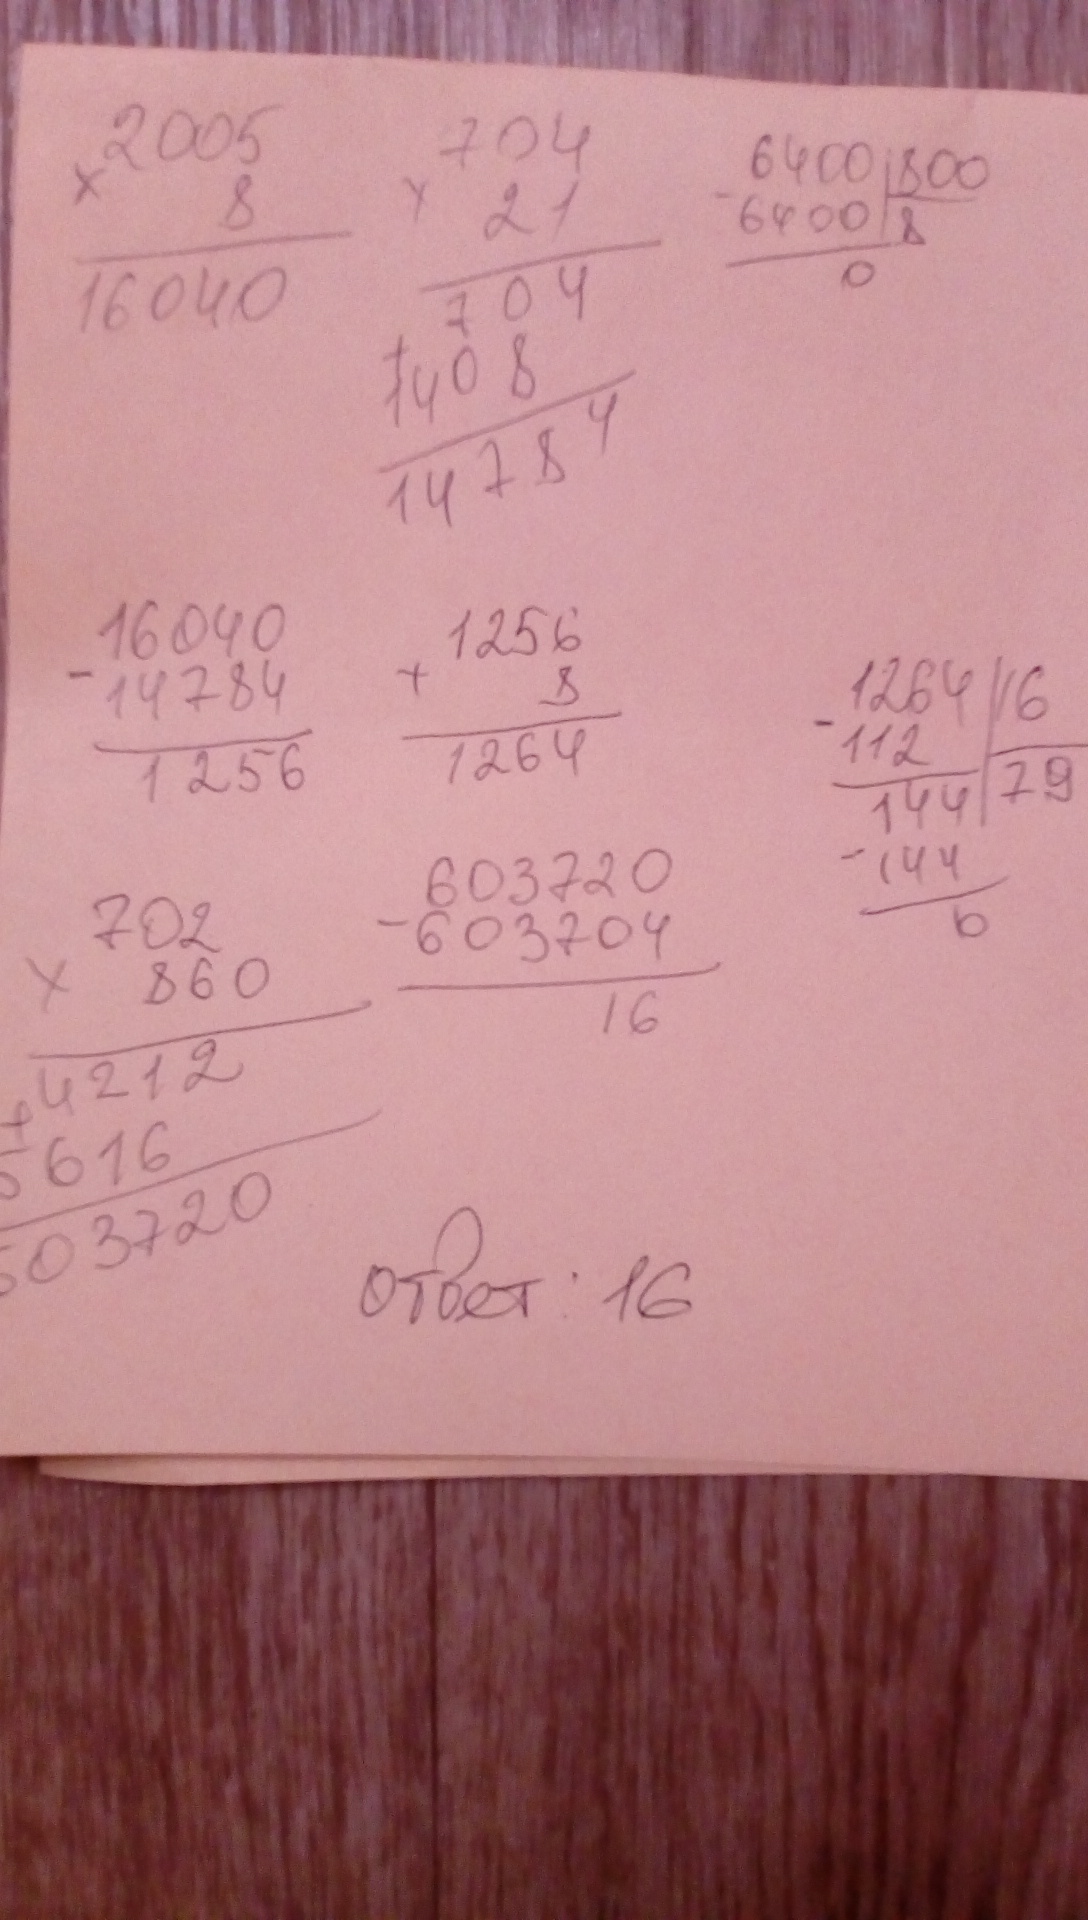 2005
× 8
16040
704
× 21
704
+
1408
14784
6400 | 800
- 6400 | 8
0
16040
- 14784
1256
1256
+ 8
1264
1264 | 16
- 112 | 79
144
- 144
0
702
× 860
4212
+
5616
603720
603720
- 603704
16
ответ: 16